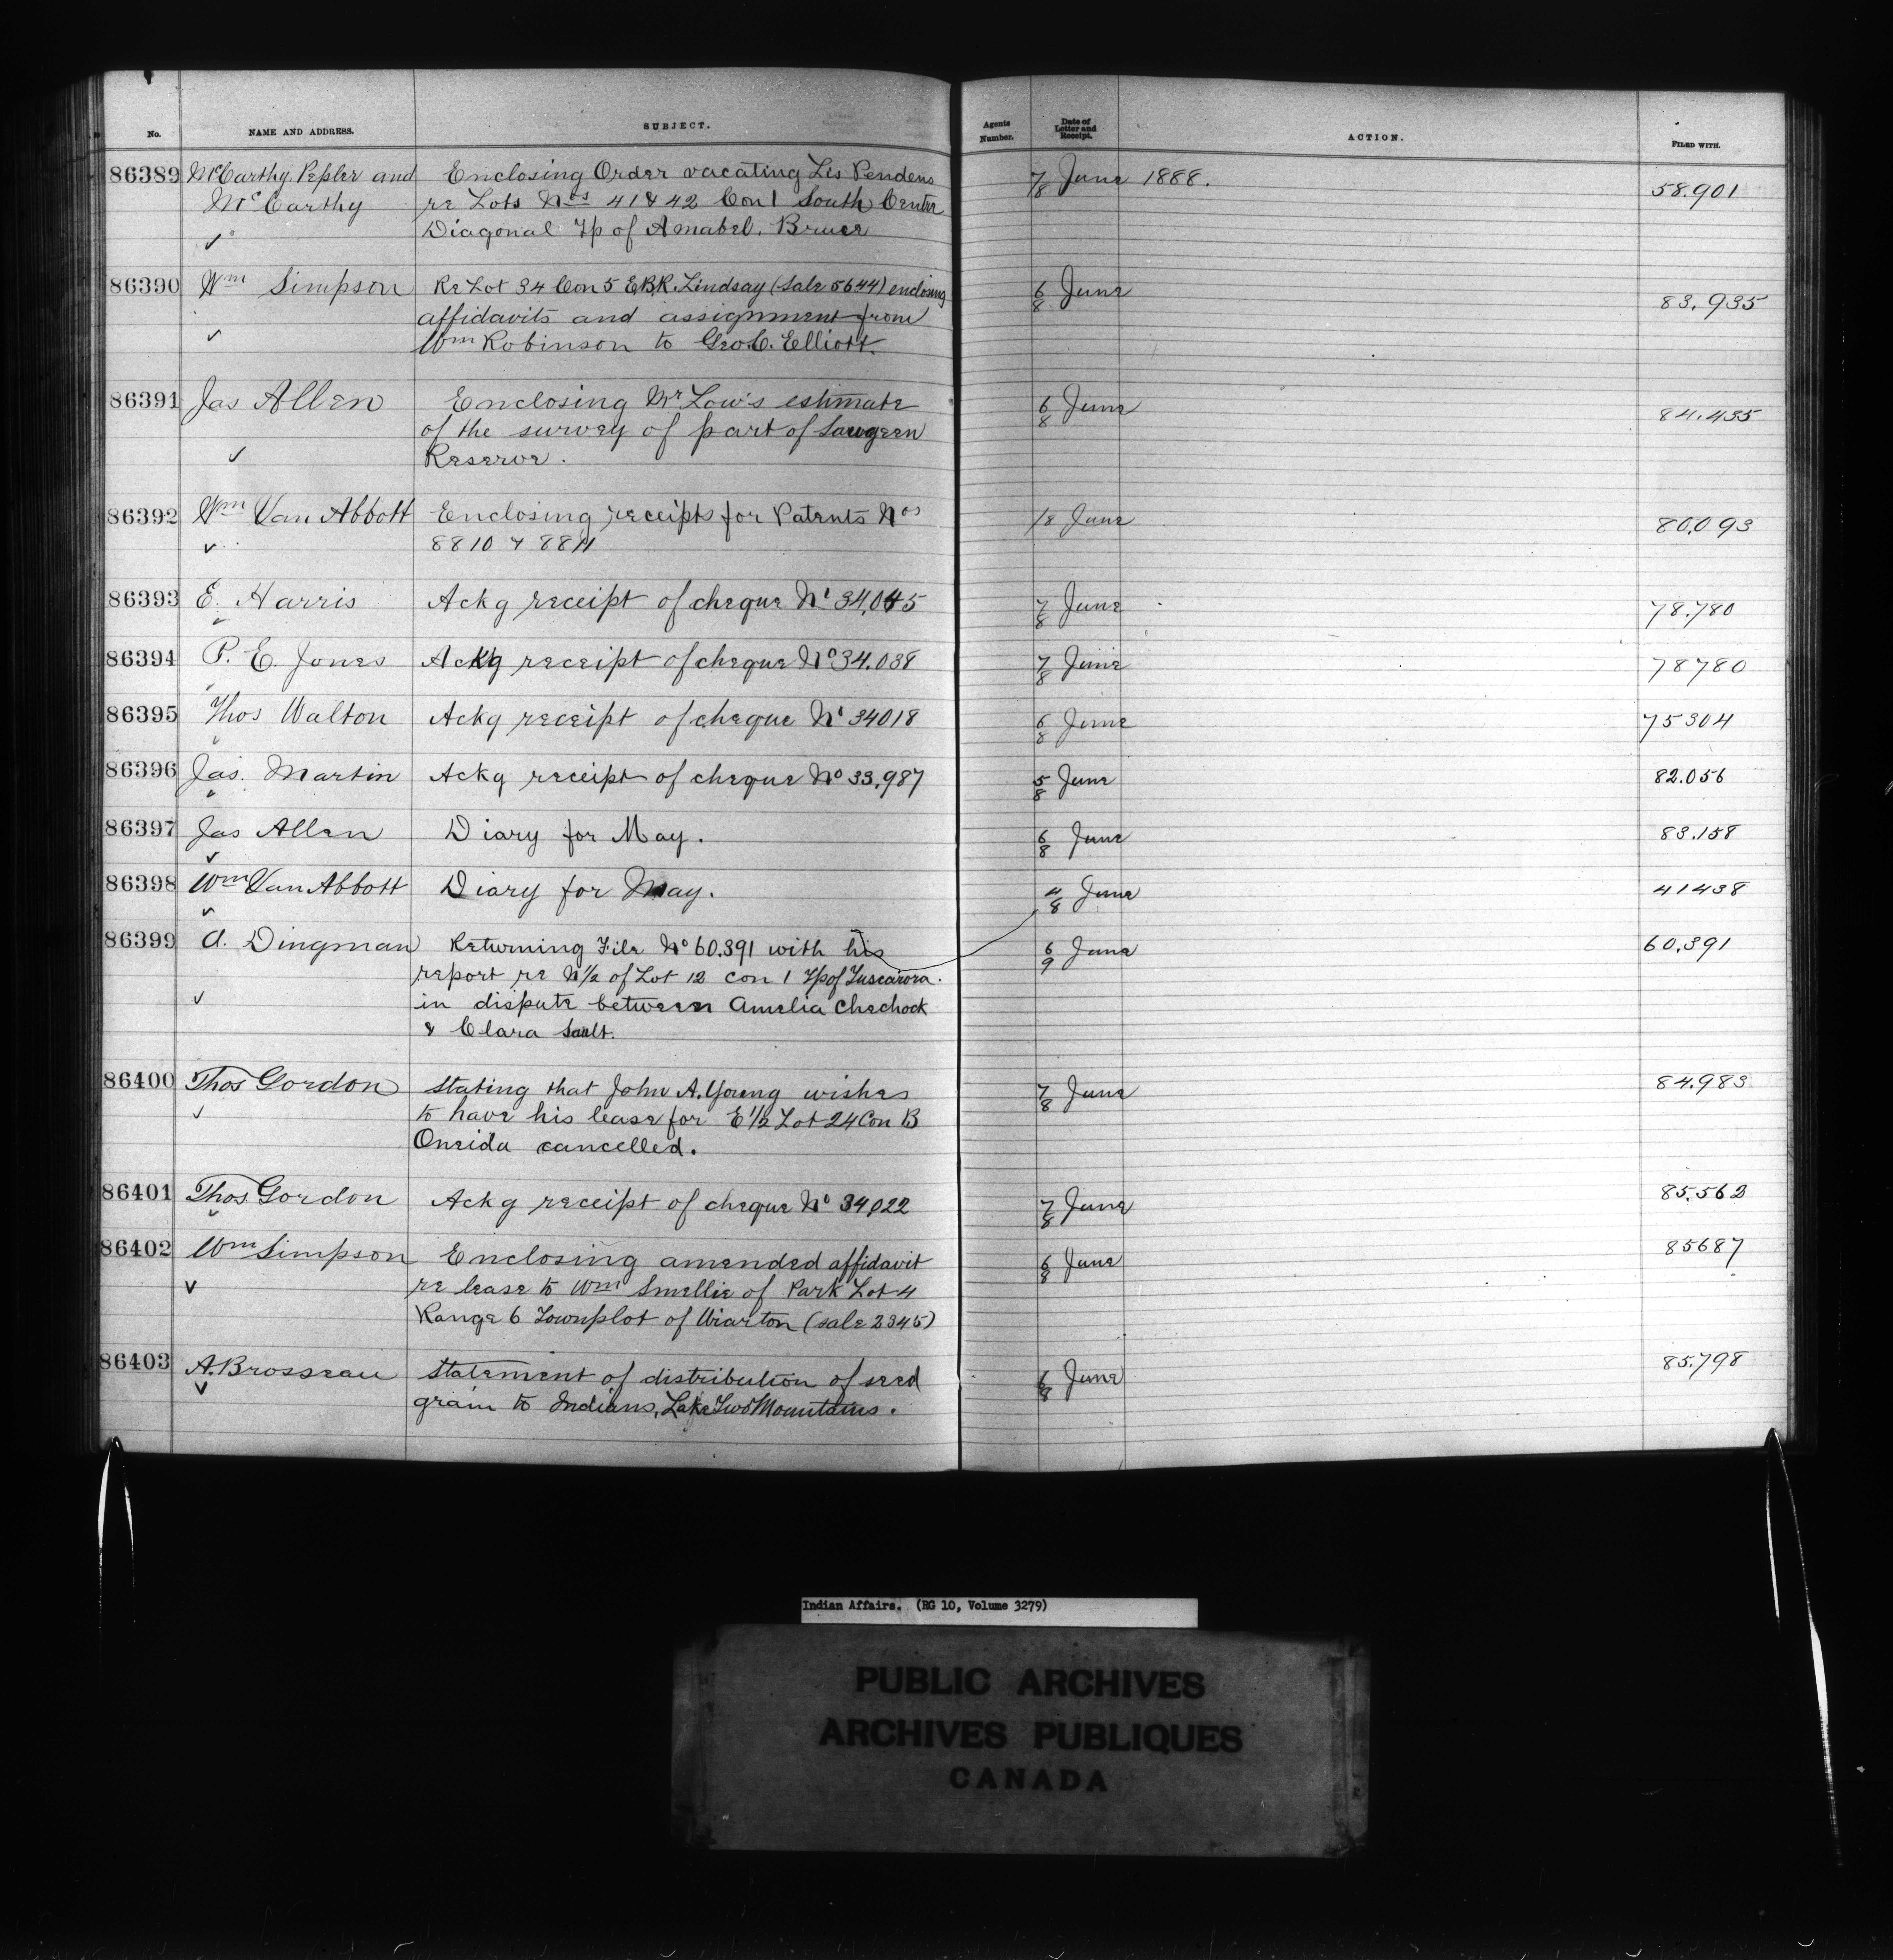 No. NAME AND ADDRESS. SUBJECT. Agents Number. Date of Letter and Receipt. ACTION. FILED WITH.
86389 McCarthy, Pepler and Enclosing Order vacating Lis Pendens 7/8 June 1888. 58.901
McCarthy re Lots Nos 41 & 42 Con 1 South Center
✓ Diagonal Tp of Amabel. Bruce
86390 Wm Simpson Re Lot 34 Con 5 E.B.R. Lindsay (Sale 5644) enclosing 6/8 June 83.935
affidavits and assignment from
✓ Wm Robinson to Geo. C. Elliott.
86391 Jas Allen Enclosing Mr Low's estimate 6/8 June 84.435
of the survey of part of Saugeen
✓ Reserve.
86392 Wm Van Abbott Enclosing receipts for Patents Nos /8 June 80.093
✓ 8810 & 8811
86393 E. Harris Ackg receipt of cheque No 34,045 7/8 June 78.780
86394 P. E. Jones Ackg receipt of cheque No 34.038 7/8 June 78780
86395 Thos Walton Ackg receipt of cheque No 34018 6/8 June 75304
86396 Jas. Martin Ackg receipt of cheque No 33,987 5/8 June 82.056
86397 Jas Allen Diary for May. 6/8 June 83.158
✓
86398 Wm Van Abbott Diary for May. 4/8 June 41438
✓
86399 A. Dingman Returning File No 60.391 with his 6/9 June 60.391
report re N 1/2 of Lot 12 Con 1 Tp of Tuscarora.
✓ in dispute between Amelia Chechock
& Clara Sault.
86400 Thos Gordon Stating that John A. Young wishes 7/8 June 84.983
✓ to have his lease for E 1/2 Lot 24 Con B
Oneida cancelled.
86401 Thos Gordon Ackg receipt of cheque No 34,022 7/8 June 85.562
✓
86402 Wm Simpson Enclosing amended affidavit 6/8 June 85687
✓ re lease to Wm Smellie of Park Lot 4
Range 6 Townplot of Wiarton (sale 2345)
86403 A. Brosseau Statement of distribution of seed 6/8 June 85.798
✓ grain to Indians, Lake Two Mountains.
Indian Affairs. (RG 10, Volume 3279)
PUBLIC ARCHIVES
ARCHIVES PUBLIQUES
CANADA